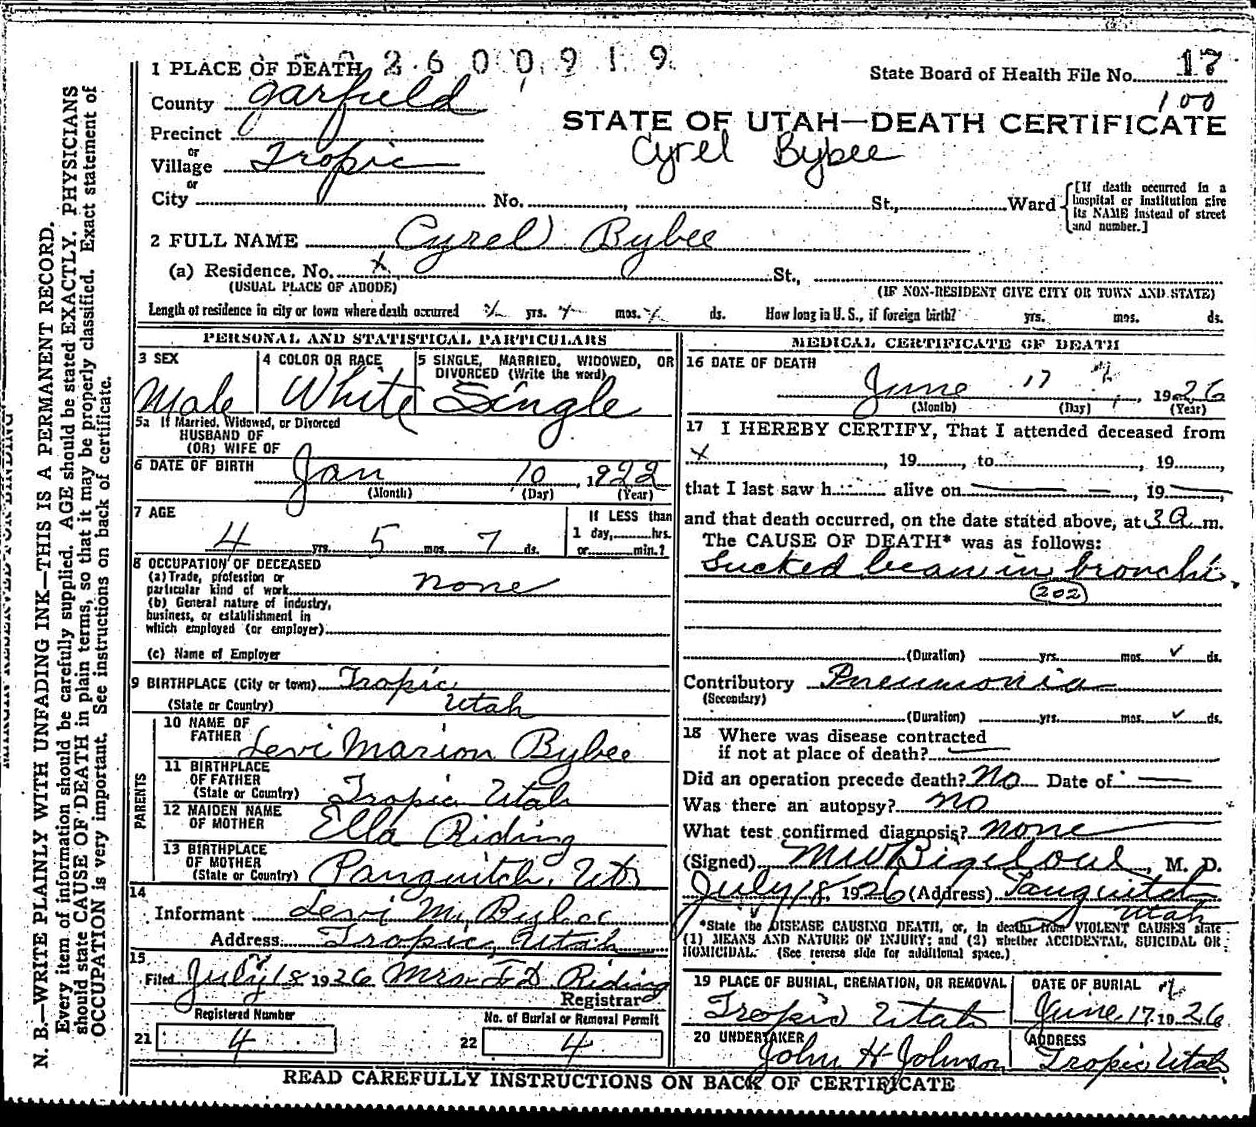 1 PLACE OF DEATH 2600919
State Board of Health File No. 17
100
County Garfield
STATE OF UTAH—DEATH CERTIFICATE
Precinct
Cyrel Bybee
or
Village Tropic
or
City No. St., Ward
[If death occurred in a hospital or institution give its NAME instead of street and number.]
2 FULL NAME Cyrel Bybee
(a) Residence, No. x St.,
(USUAL PLACE OF ABODE) (IF NON-RESIDENT GIVE CITY OR TOWN AND STATE)
Length of residence in city or town where death occurred yrs. mos. ds. How long in U. S., if foreign birth? yrs. mos. ds.
PERSONAL AND STATISTICAL PARTICULARS
3 SEX 4 COLOR OR RACE 5 SINGLE, MARRIED, WIDOWED, OR DIVORCED (Write the word)
Male White Single
5a If Married, Widowed, or Divorced
HUSBAND OF
(OR) WIFE OF
6 DATE OF BIRTH Jan 10, 1922
(Month) (Day) (Year)
7 AGE If LESS than
4 yrs. 5 mos. 7 ds. 1 day, hrs.
or min.?
8 OCCUPATION OF DECEASED
(a) Trade, profession or
particular kind of work none
(b) General nature of industry,
business, or establishment in
which employed (or employer)
(c) Name of Employer
9 BIRTHPLACE (City or town) Tropic
(State or Country) Utah
PARENTS
10 NAME OF
FATHER Levi Marion Bybee
11 BIRTHPLACE
OF FATHER
(State or Country) Tropic Utah
12 MAIDEN NAME
OF MOTHER Ella Riding
13 BIRTHPLACE
OF MOTHER
(State or Country) Panguitch, Utah
14
Informant Levi M. Bybee
Address Tropic, Utah
15
Filed July 18 1926 Mrs. F D Riding
Registrar
Registered Number No. of Burial or Removal Permit
21 4 22 4
MEDICAL CERTIFICATE OF DEATH
16 DATE OF DEATH
June 17, 1926
(Month) (Day) (Year)
17 I HEREBY CERTIFY, That I attended deceased from
x, 19, to, 19,
that I last saw h alive on, 19,
and that death occurred, on the date stated above, at 3 a. m.
The CAUSE OF DEATH* was as follows:
Sucked bean in bronchi.
202
(Duration) yrs. mos. ds.
Contributory Pneumonia
(Secondary)
(Duration) yrs. mos. ds.
18 Where was disease contracted
if not at place of death?
Did an operation precede death? No Date of
Was there an autopsy? no
What test confirmed diagnosis? none
(Signed) M W Bigelow, M. D.
July 18, 1926 (Address) Panguitch
Utah
*State the DISEASE CAUSING DEATH, or, in deaths from VIOLENT CAUSES state
(1) MEANS AND NATURE OF INJURY; and (2) whether ACCIDENTAL, SUICIDAL OR
HOMICIDAL. (See reverse side for additional space.)
19 PLACE OF BURIAL, CREMATION, OR REMOVAL DATE OF BURIAL
Tropic Utah June 17 1926
20 UNDERTAKER ADDRESS
John H Johnson Tropic Utah
READ CAREFULLY INSTRUCTIONS ON BACK OF CERTIFICATE
N. B.—WRITE PLAINLY WITH UNFADING INK—THIS IS A PERMANENT RECORD.
Every item of information should be carefully supplied. AGE should be stated EXACTLY. PHYSICIANS
should state CAUSE OF DEATH in plain terms, so that it may be properly classified. Exact statement of
OCCUPATION is very important. See instructions on back of certificate.